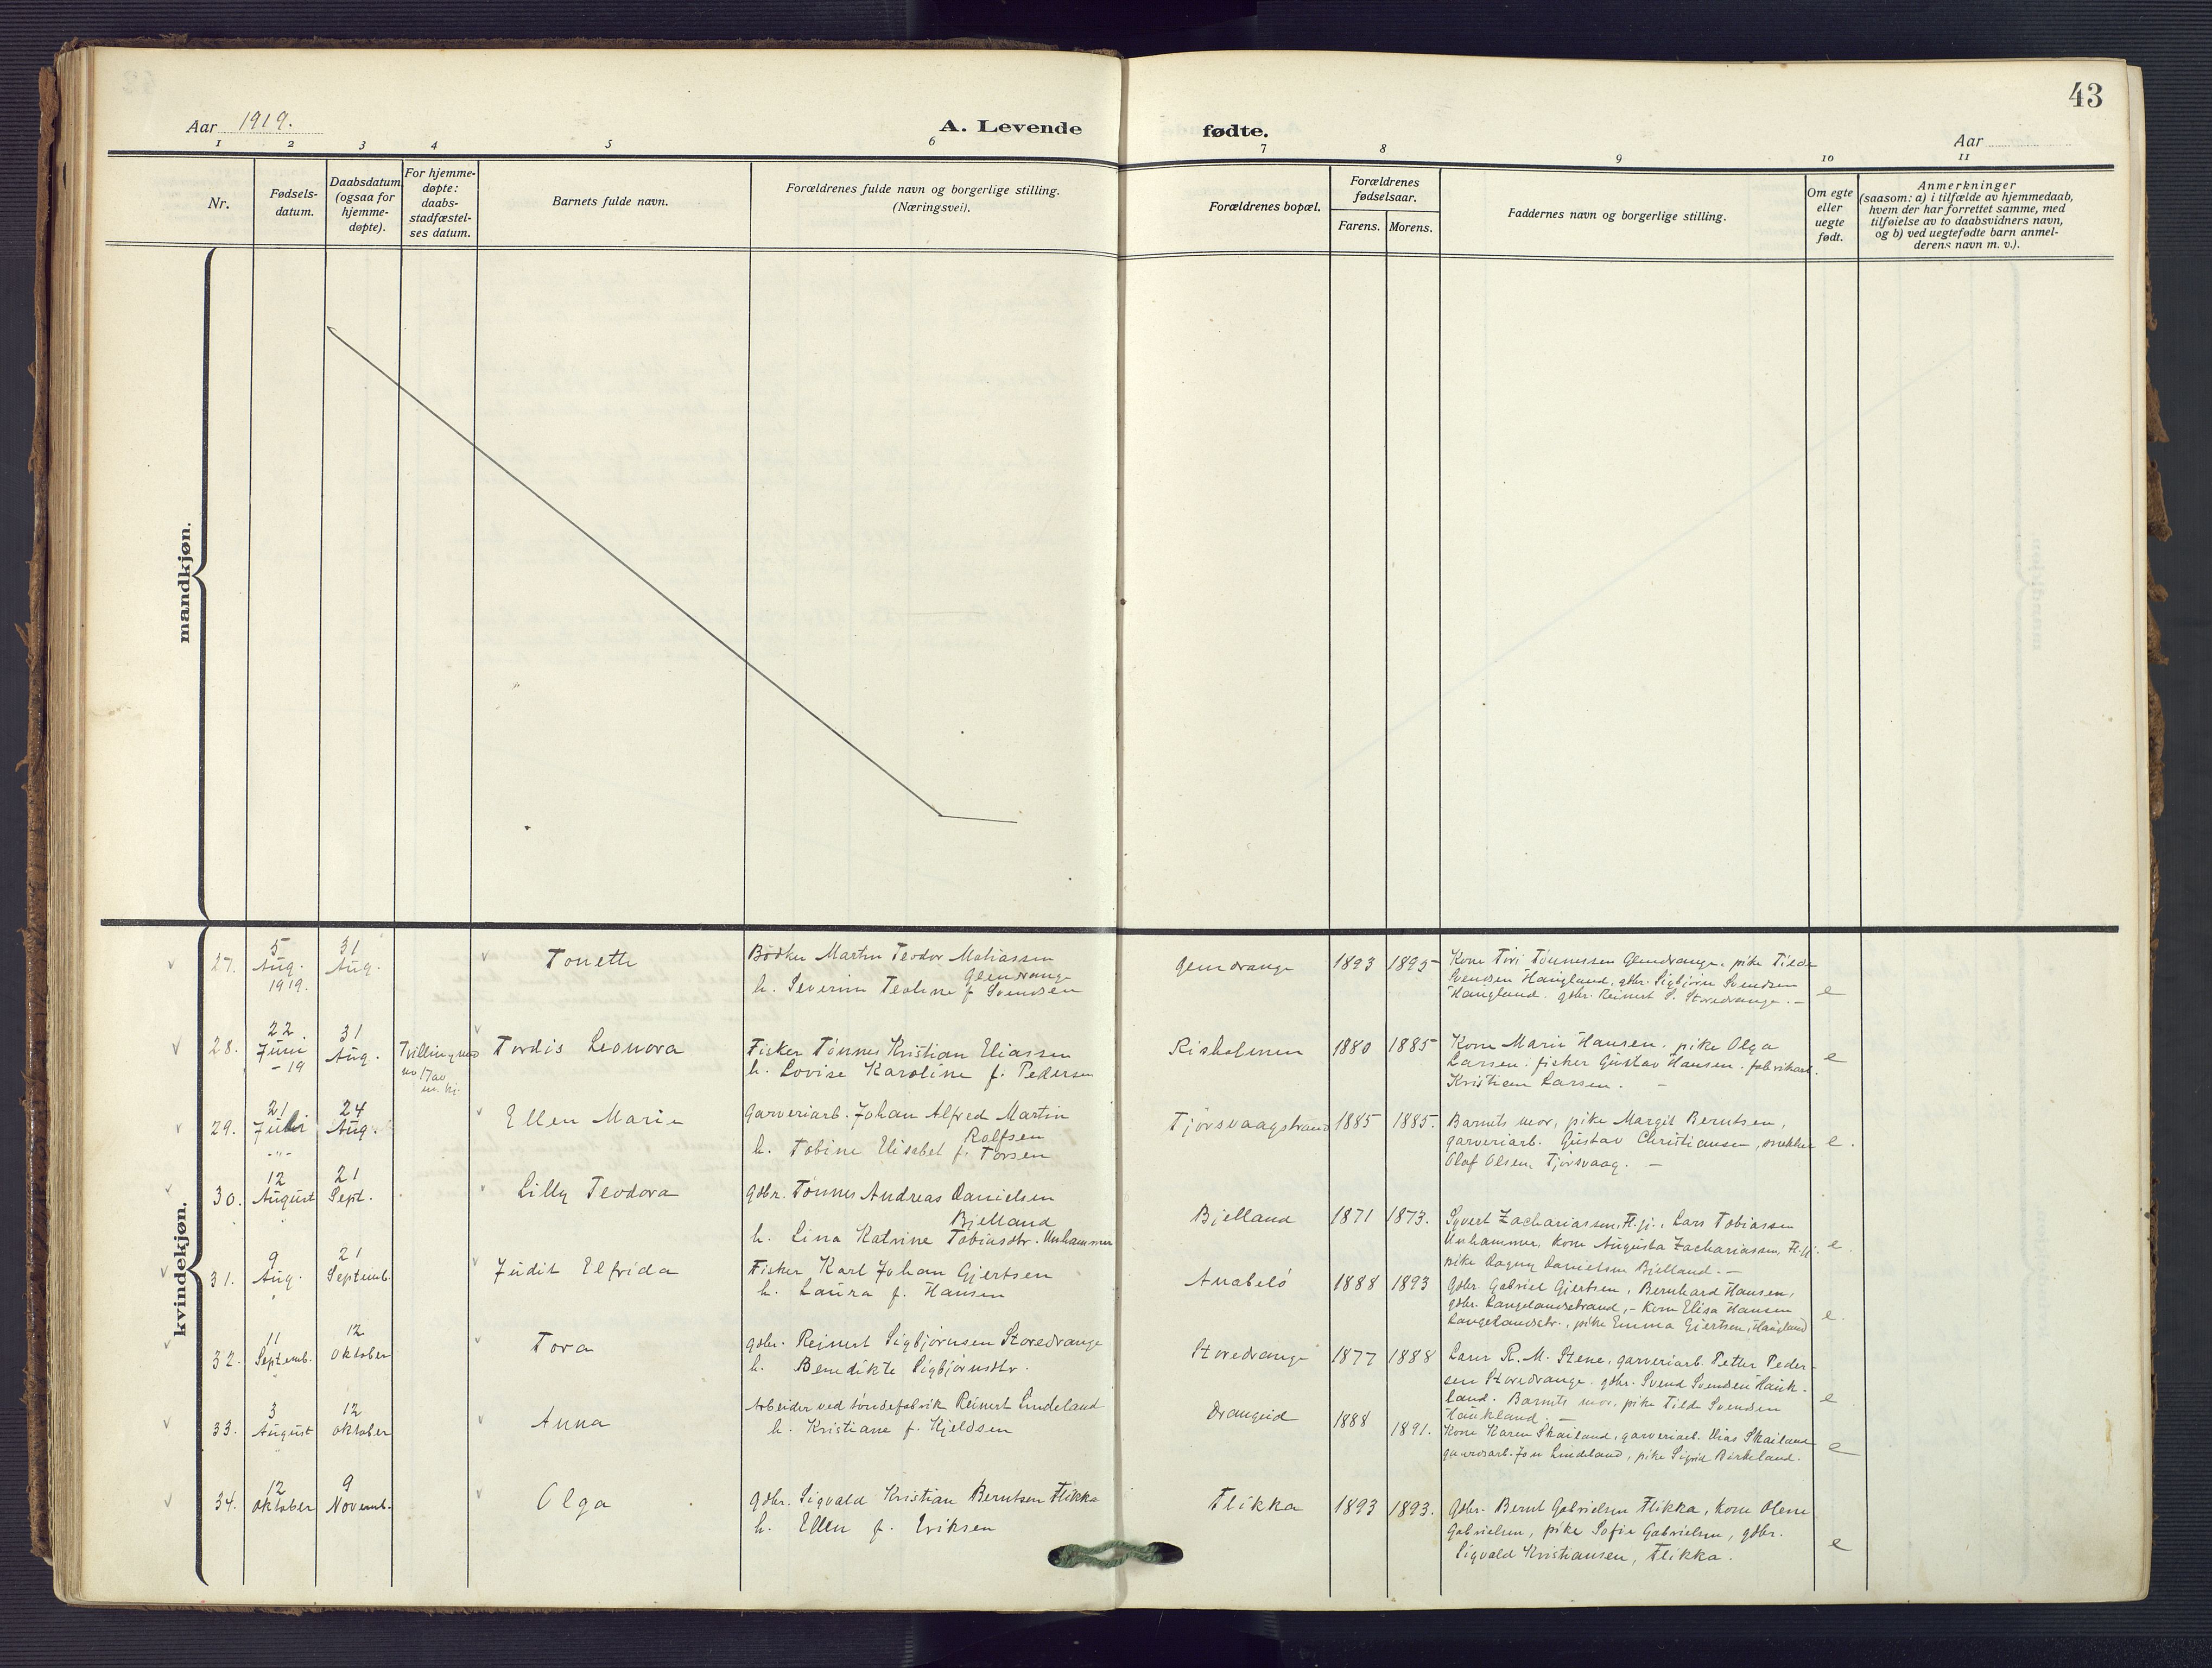 43
Aar 1919.
A. Levende fødte.
Aar
1 2 3 4 5 6 7 8 9 10 11
Nr.
Fødsels-
datum.
Daabsdatum
(ogsaa for
hjemme-
døpte).
For hjemme-
døpte:
daabs-
stadfæstel-
ses datum.
Barnets fulde navn.
Forældrenes fulde navn og borgerlige stilling.
(Næringsvei).
Forældrenes bopæl.
Forældrenes
fødselsaar.
Farens. Morens.
Faddernes navn og borgerlige stilling.
Om egte
eller
uegte
født.
Anmerkninger
(saasom: a) i tilfælde av hjemmedaab,
hvem der har forrettet samme, med
tilføielse av to daabsvidners navn,
og b) ved uegtefødte barn anmel-
derens navn m. v.).
mandkjøn.
kvindekjøn.
27.
5
Aug.
1919.
31
Aug.
Tonette
Bødker Martin Teodor Matiassen
Glendrange
h. Severine Teoline f Svendsen
Glendrange
1893 1895
Kone Tori Tønnessen Glendrange, pike Tilde
Svendsen Haugland, gbr. Sigbjørn Svendsen
Haugland. gbr. Reinert S. Storedrange. –
e
28.
22
Juni
-19
31
Aug.
Tvilling med
no 17 av
m. kj.
Tordis Leonora
Fisker Tønnes Kristian Eliassen
h. Lovise Karoline f. Pedersen
Risholmen
1880 1885
Kone Marie Hansen, pike Olga
Larsen. fisker Gustav Hansen. fabrikarb.
Kristian Larsen. –
e
29.
21
Juli
-"-
24
Aug.
Ellen Marie
Garveriarb. Johan Alfred Martin
Rolfsen
h. Tobine Elisabet f. Torsen
Tjørsvaagstrand
1885 1885.
Barnets mor, pike Margit Berntsen,
garveriarb. Gustav Christiansen, snekker
Olaf Olsen, Tjørsvaag. –
e.
30.
12
August
"
21
Sept.
Lilly Teodora
gbr. Tønnes Andreas Danielsen
Bjelland
h. Lina Katrine Tobiasdtr. Unhammer
Bjelland
1871 1873.
Syvert Zachariassen, Fl.gj., Lars Tobiassen
Unhammer, kone Augusta Zachariassen, Fl.gj.
pike Dagny Danielsen Bjelland. –
e.
31.
9
Aug.
"
21
Septemb.
Judit Elfrida
Fisker Karl Johan Gjertsen
h. Laura f. Hansen
Anabelø
1888 1893
Gbr. Gabriel Gjertsen, Bernhard Hansen,
gbr. Langelandsstrand, – Kone Elisa Hansen
Langelandsstr., pike Emma Gjertsen, Haugland
e.
32.
11
Septemb.
"
12
Oktober
Tora
gbr. Reinert Sigbjørnsen Storedrange
h. Benedikte Sigbjørnsdtr.
Storedrange
1877 1888
Lærer R. M. Stene, garveriarb. Petter Peder-
sen Storedrange. gbr. Svend Svendsen Hauk-
land. Barnets mor, pike Tilde Svendsen
Haukland. –
e
33.
3
August
12
Oktober
Anna
Arbeider ved tøndefabrik Reinert Lindeland
h. Kristiane f. Kjeldsen
Drangeid
1888
1891.
Kone Karen Skailand, garveriarb. Elias Skailand
garveriarb. Jon Lindeland, pike Sigrid Birkeland.
e
34.
12
Oktober
9
Novemb.
Olga
gbr. Sigvald Kristian Berntsen Flikka
h. Ellen f. Eriksen
Flikka
1893 1893.
Gbr. Bernt Gabrielsen Flikka, kone Olene
Gabrielsen, pike Sofie Gabrielsen, gbr.
Sigvald Kristiansen, Flikka.
e